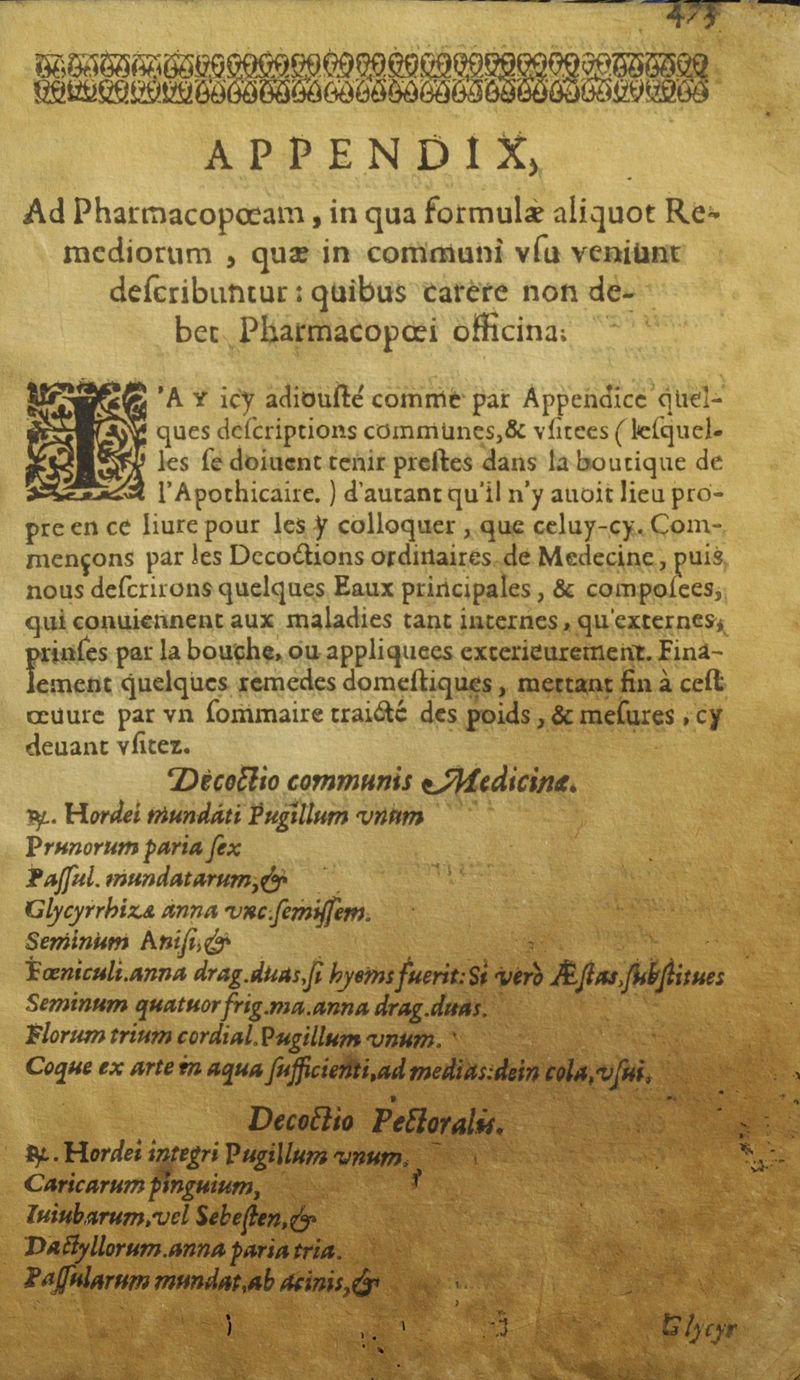 473
APPENDIX,
Ad Pharmacopœam, in qua formulæ aliquot Re-
mediorum, quæ in communi vſu veniunt
deſcribuntur: quibus carere non de-
bet Pharmacopœi officina.
I'AY icy adiouſté comme par Appendice quel-
ques deſcriptions communes, & vſitees (leſquel-
les ſe doiuent tenir preſtes dans la boutique de
l'Apothicaire.) d'autant qu'il n'y auoit lieu pro-
pre en ce liure pour les y colloquer, que celuy-cy. Com-
mençons par les Decoctions ordinaires de Medecine, puis
nous deſcrirons quelques Eaux principales, & compoſees,
qui conuiennent aux maladies tant internes, qu'externes,
prinſes par la bouche, ou appliquees exterieurement. Fina-
lement quelques remedes domeſtiques, mettant fin à ceſt
œuure par vn ſommaire traicté des poids, & meſures, cy
deuant vſitez.
Decoctio communis Medicinæ.
℞. Hordei mundati Pugillum vnum
Prunorum paria ſex
Paſſul. mundatarum, &
Glycyrrhizæ anna vnc. ſemiſſem.
Seminum Aniſi, &
Fœniculi. anna drag. duas, ſi hyems fuerit: Si verò Æſtas, ſubſtitues
Seminum quatuor frig. ma. anna drag. duas.
Florum trium cordial. Pugillum vnum.
Coque ex arte in aqua ſufficienti, ad medias: dein cola, vſui.
Decoctio Pectoralis.
℞. Hordei integri Pugillum vnum.
Caricarum pinguium,
Iuiubarum, vel Sebeſten, &
Dactyllorum. anna paria tria.
Paſſularum mundat, ab acinis, &
Glycyr